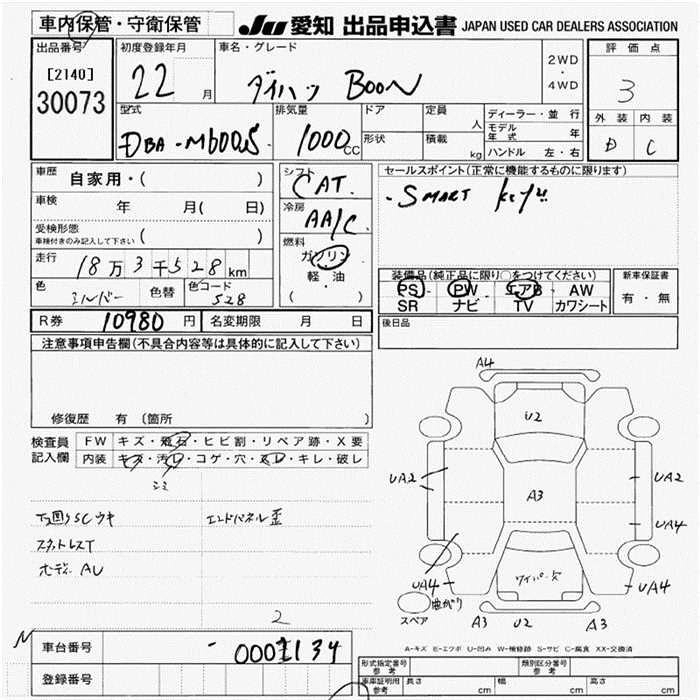 車内保管・守衛保管
JU 愛知 出品申込書 JAPAN USED CAR DEALERS ASSOCIATION
出品番号 初度登録年月 車名・グレード 2WD・4WD 評価点
[2140]
30073 22 月 ダイハツ BOON 3
型式 排気量 ドア 定員 人 ディーラー・並行 外装 内装
DBA-M600S 1000CC 形状 積載 kg モデル年式 年 D C
ハンドル 左・右
車歴 自家用・( ) シフト CAT. セールスポイント(正常に機能するものに限ります)
車検 年 月( 日) 冷房 AA/C ・SMART key
受検形態 ( )
車検付きのみ記入して下さい
燃料 ガソリン 軽油 ( )
走行 18万3千528km
装備品(純正品に限り○をつけてください) 新車保証書
色 シルバー 色替 色コード 528
PS・PW・エアB・AW 有・無
SR ナビ TV カワシート
R券 10980円 名変期限 月 日 後日品
注意事項申告欄(不具合内容等は具体的に記入して下さい)
修復歴 有 (箇所
検査員記入欄 FW キズ・飛石・ヒビ割・リペア跡・X要
内装 キズ・汚レ・コゲ・穴・スレ・キレ・破レ
シミ
下廻りSCウキ エンドパネル歪
スペアレスT
ボディーAU
2
A4
U2
UA2 A3 UA2
UA4
UA4 ワイパーX UA4
曲がり
スペア A3 U2 A3
A-キズ E-エクボ U-凹み W-補修跡 S-サビ C-腐食 XX-交換済
N 車台番号 -0001134
登録番号
形式指定番号 参考 類別区分番号 参考
車庫証明用 参考 長さ cm 幅 cm 高さ cm